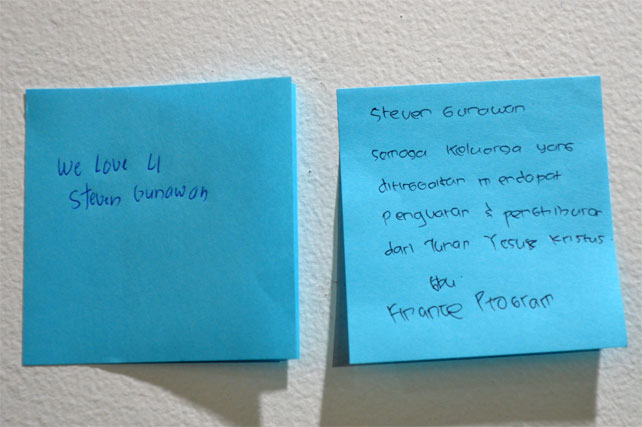 We Love U
Steven Gunawan
Steven Gunawan
semoga keluarga yang
ditinggalkan mendapat
penguatan & penghiburan
dari Tuhan Yesus Kristus.
Finance Program